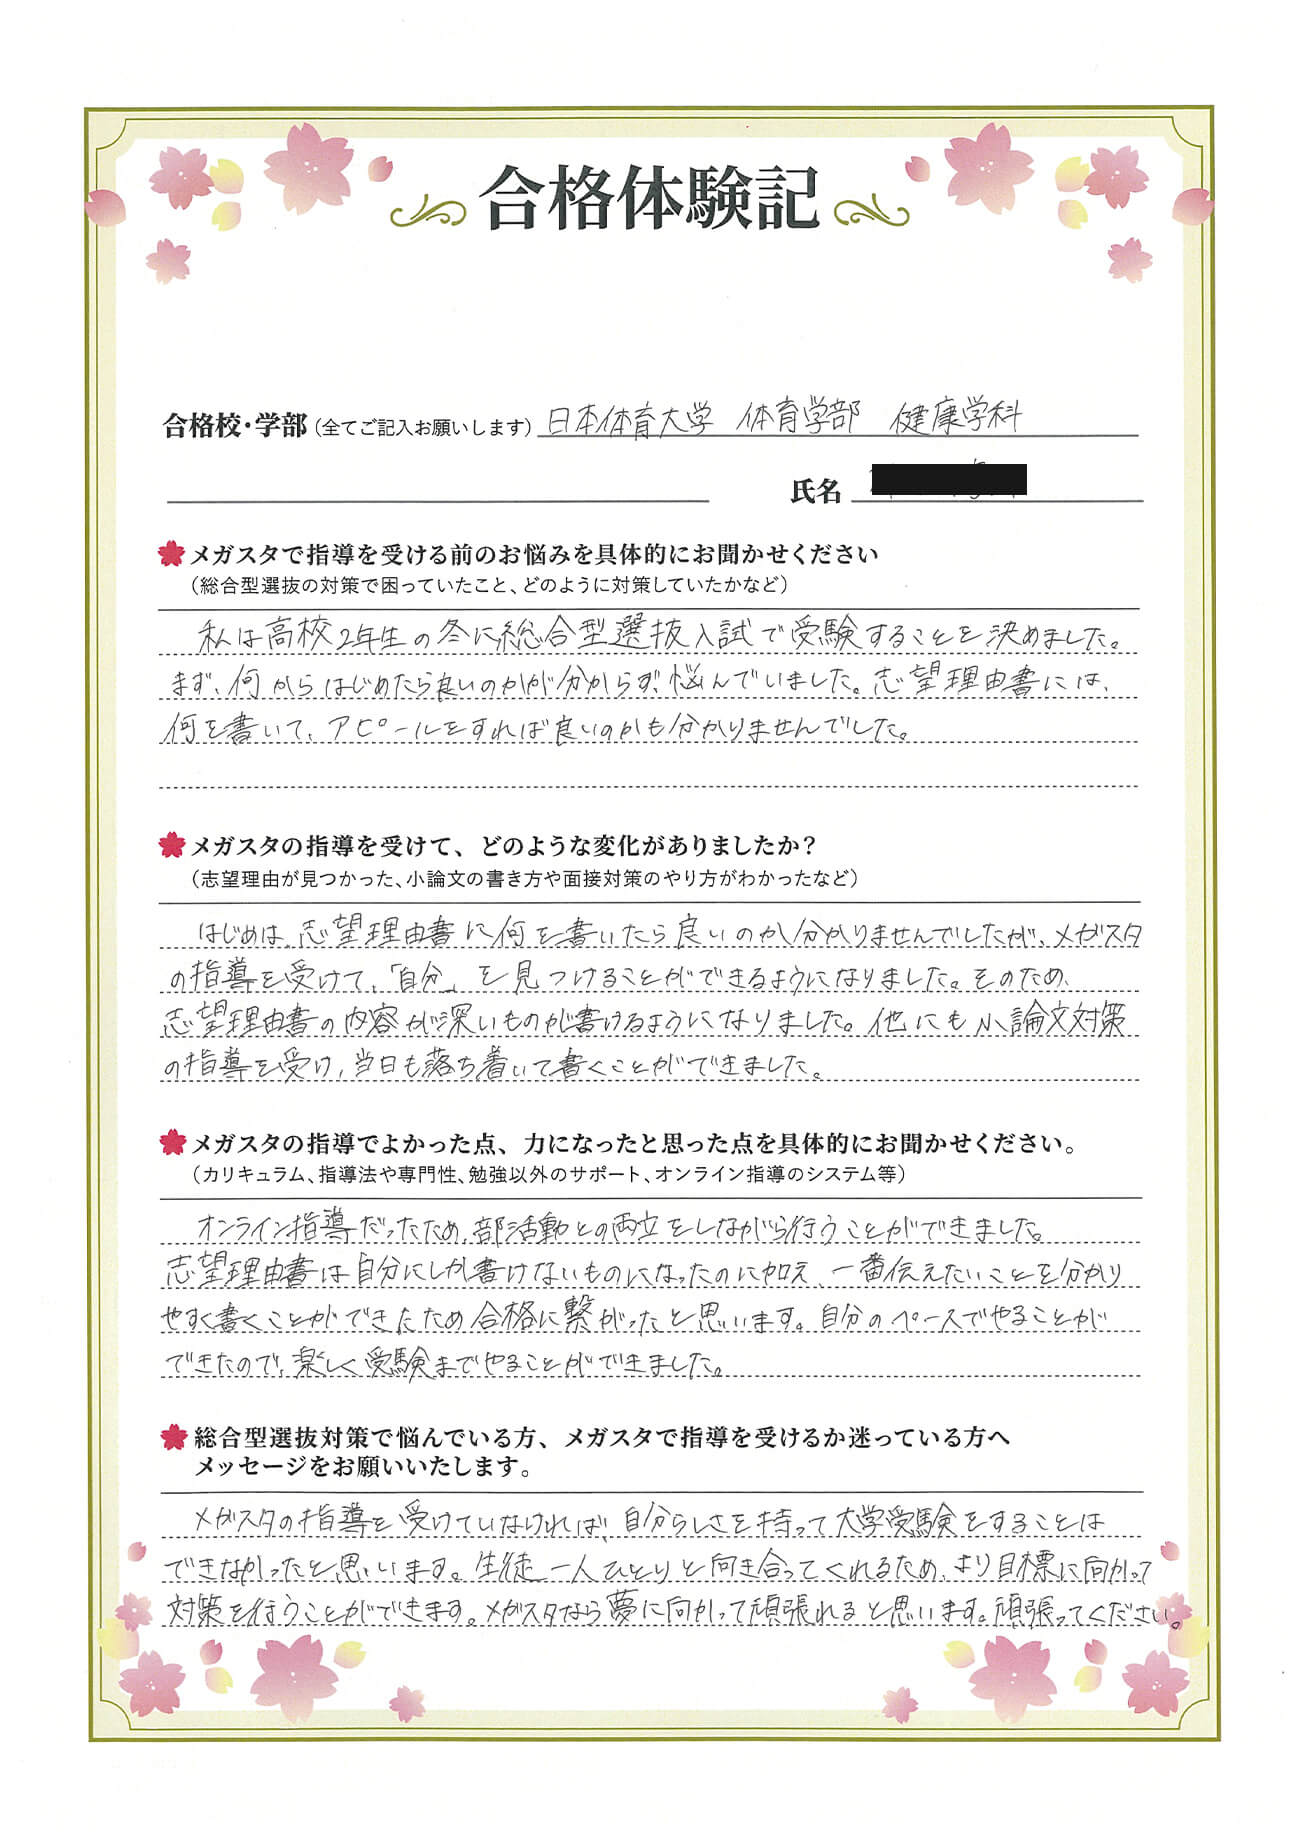 合格体験記
合格校・学部（全てご記入お願いします）日本体育大学 体育学部 健康学科
氏名
メガスタで指導を受ける前のお悩みを具体的にお聞かせください
（総合型選抜の対策で困っていたこと、どのように対策していたかなど）
私は高校2年生の冬に総合型選抜入試で受験することを決めました。
まず、何からはじめたら良いのかが分からず、悩んでいました。志望理由書には、
何を書いて、アピールをすれば良いのかも分かりませんでした。
メガスタの指導を受けて、どのような変化がありましたか？
（志望理由が見つかった、小論文の書き方や面接対策のやり方がわかったなど）
はじめは、志望理由書に何を書いたら良いのか分かりませんでしたが、メガスタ
の指導を受けて、「自分」を見つけることができるようになりました。そのため、
志望理由書の内容が深いものが書けるようになりました。他にも小論文対策
の指導を受け、当日も落ち着いて書くことができました。
メガスタの指導でよかった点、力になったと思った点を具体的にお聞かせください。
（カリキュラム、指導法や専門性、勉強以外のサポート、オンライン指導のシステム等）
オンライン指導だったため、部活動との両立をしながら行うことができました。
志望理由書は自分にしか書けないものになったのに加え、一番伝えたいことを分かり
やすく書くことができたため合格に繋がったと思います。自分のペースでやることが
できたので、楽しく受験までやることができました。
総合型選抜対策で悩んでいる方、メガスタで指導を受けるか迷っている方へ
メッセージをお願いいたします。
メガスタの指導を受けていなければ、自分らしさを持って大学受験をすることは
できなかったと思います。生徒一人ひとりと向き合ってくれるため、より目標に向かって
対策を行うことができます。メガスタなら夢に向かって頑張れると思います。頑張ってください。